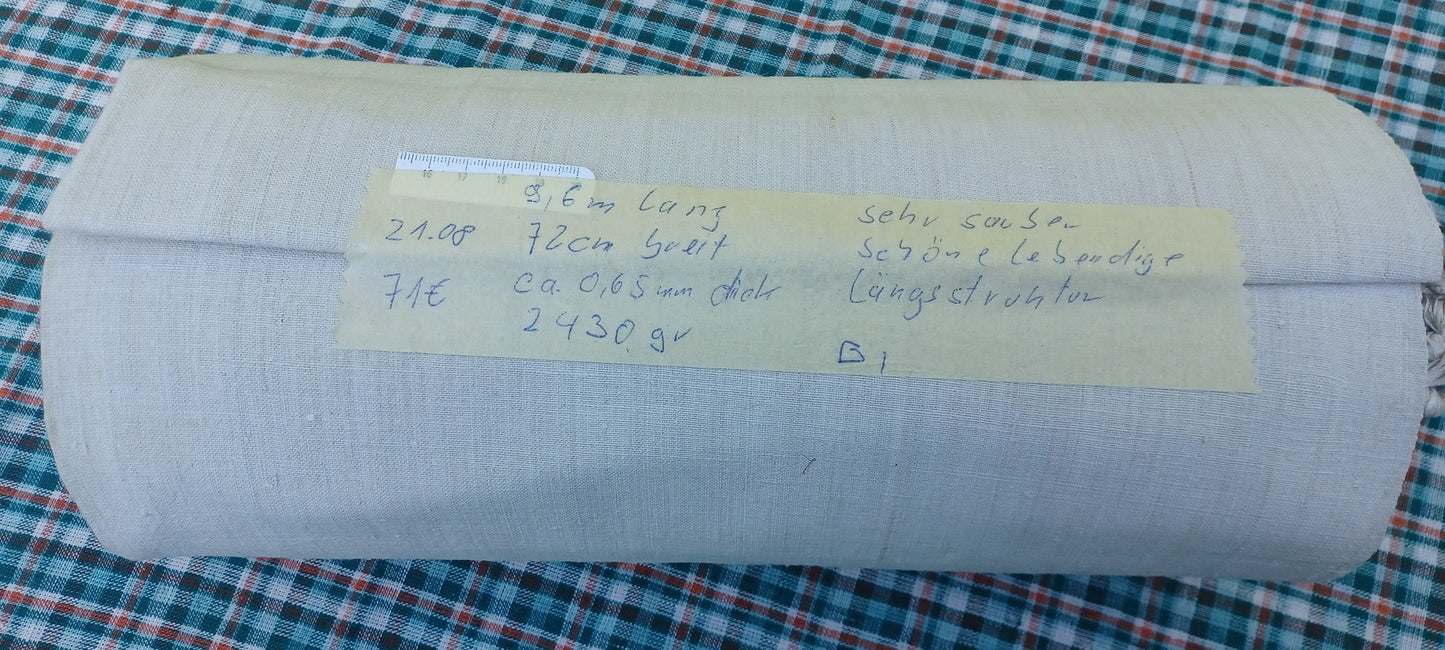 16 17 18 19
9,6m lang
21.08 72cm breit
71€ ca. 0,65mm dick
2430 gr
sehr sauber
schöne lebendige
Längsstruktur
B1